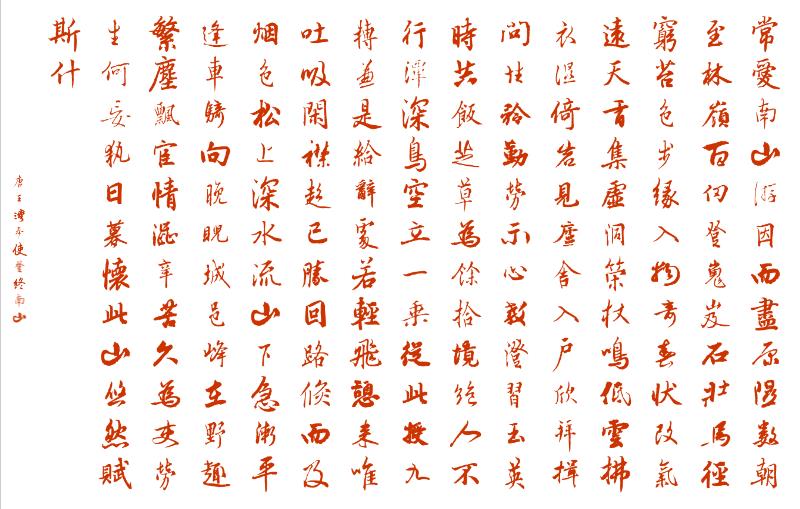 常愛南山游因而盡原隰數朝
至林嶺百仞登嵬岌石壯馬徑
窮苔色步緣入物奇春狀改氣
遠天香集虛洞策杖鳴低雲拂
衣濕倚岩見廬舍入戶欣拜揖
問性矜勤勞示心教澄習玉英
時共飯芝草為餘拾境絕人不
行潭深鳥空立一乘從此授九
轉兼是給辭處若輕飛憩來唯
吐吸閑襟超已勝回路倏而及
烟色松上深水流山下急漸平
逢車騎向晚睨城邑峰在野趣
繁塵飄宦情澀辛苦久為吏勞
生何妄執日暮懷此山悠然賦
斯什
唐王灣奉使登終南山